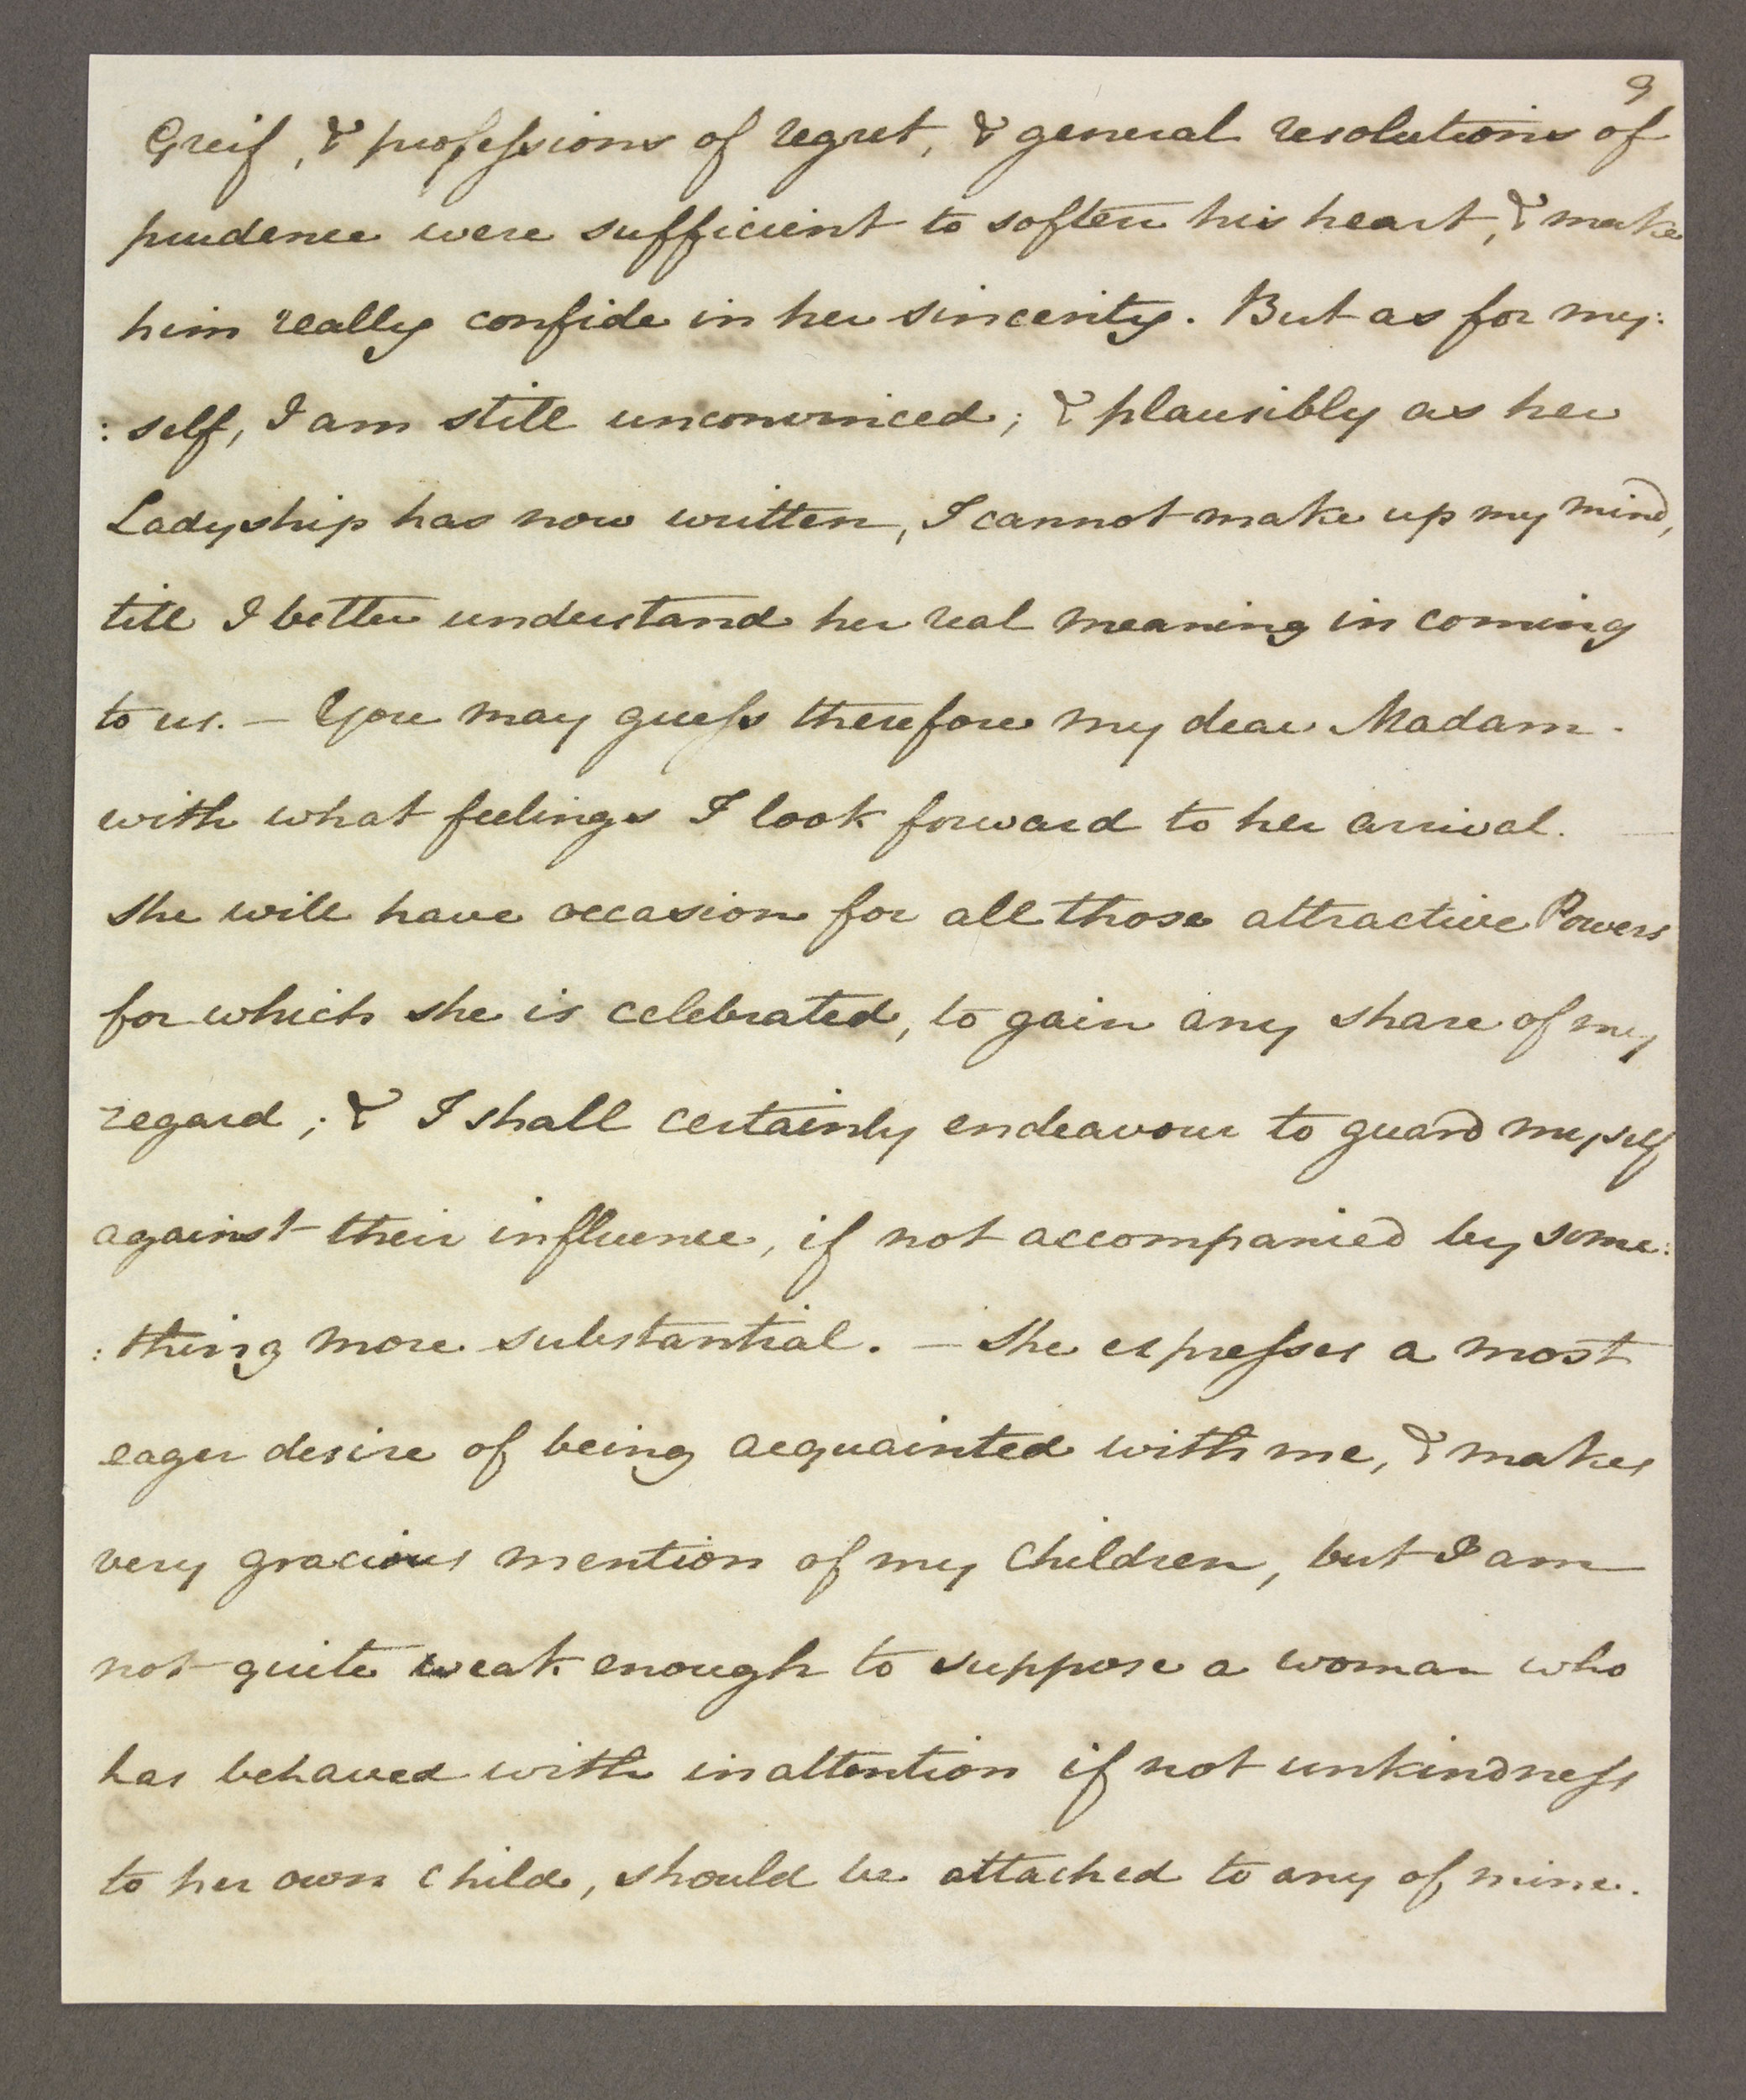 9
Greif, & professions of regret, & general resolutions of
prudence were sufficient to soften his heart, & make
him really confide in her sincerity. But as for my:
:self, I am still unconvinced; & plausibly as her
Ladyship has now written, I cannot make up my mind,
till I better understand her real meaning in coming
to us. — You may guess therefore my dear Madam.
with what feelings I look forward to her arrival.
She will have occasion for all those attractive Powers
for which she is celebrated, to gain any share of my
regard; & I shall certainly endeavour to guard myself
against their influence, if not accompanied by some:
:thing more substantial. — She expresses a most
eager desire of being acquainted with me, & makes
very gracious mention of my children, but I am
not quite weak enough to suppose a woman who
has behaved with inattention if not unkindness
to her own child, should be attached to any of mine.